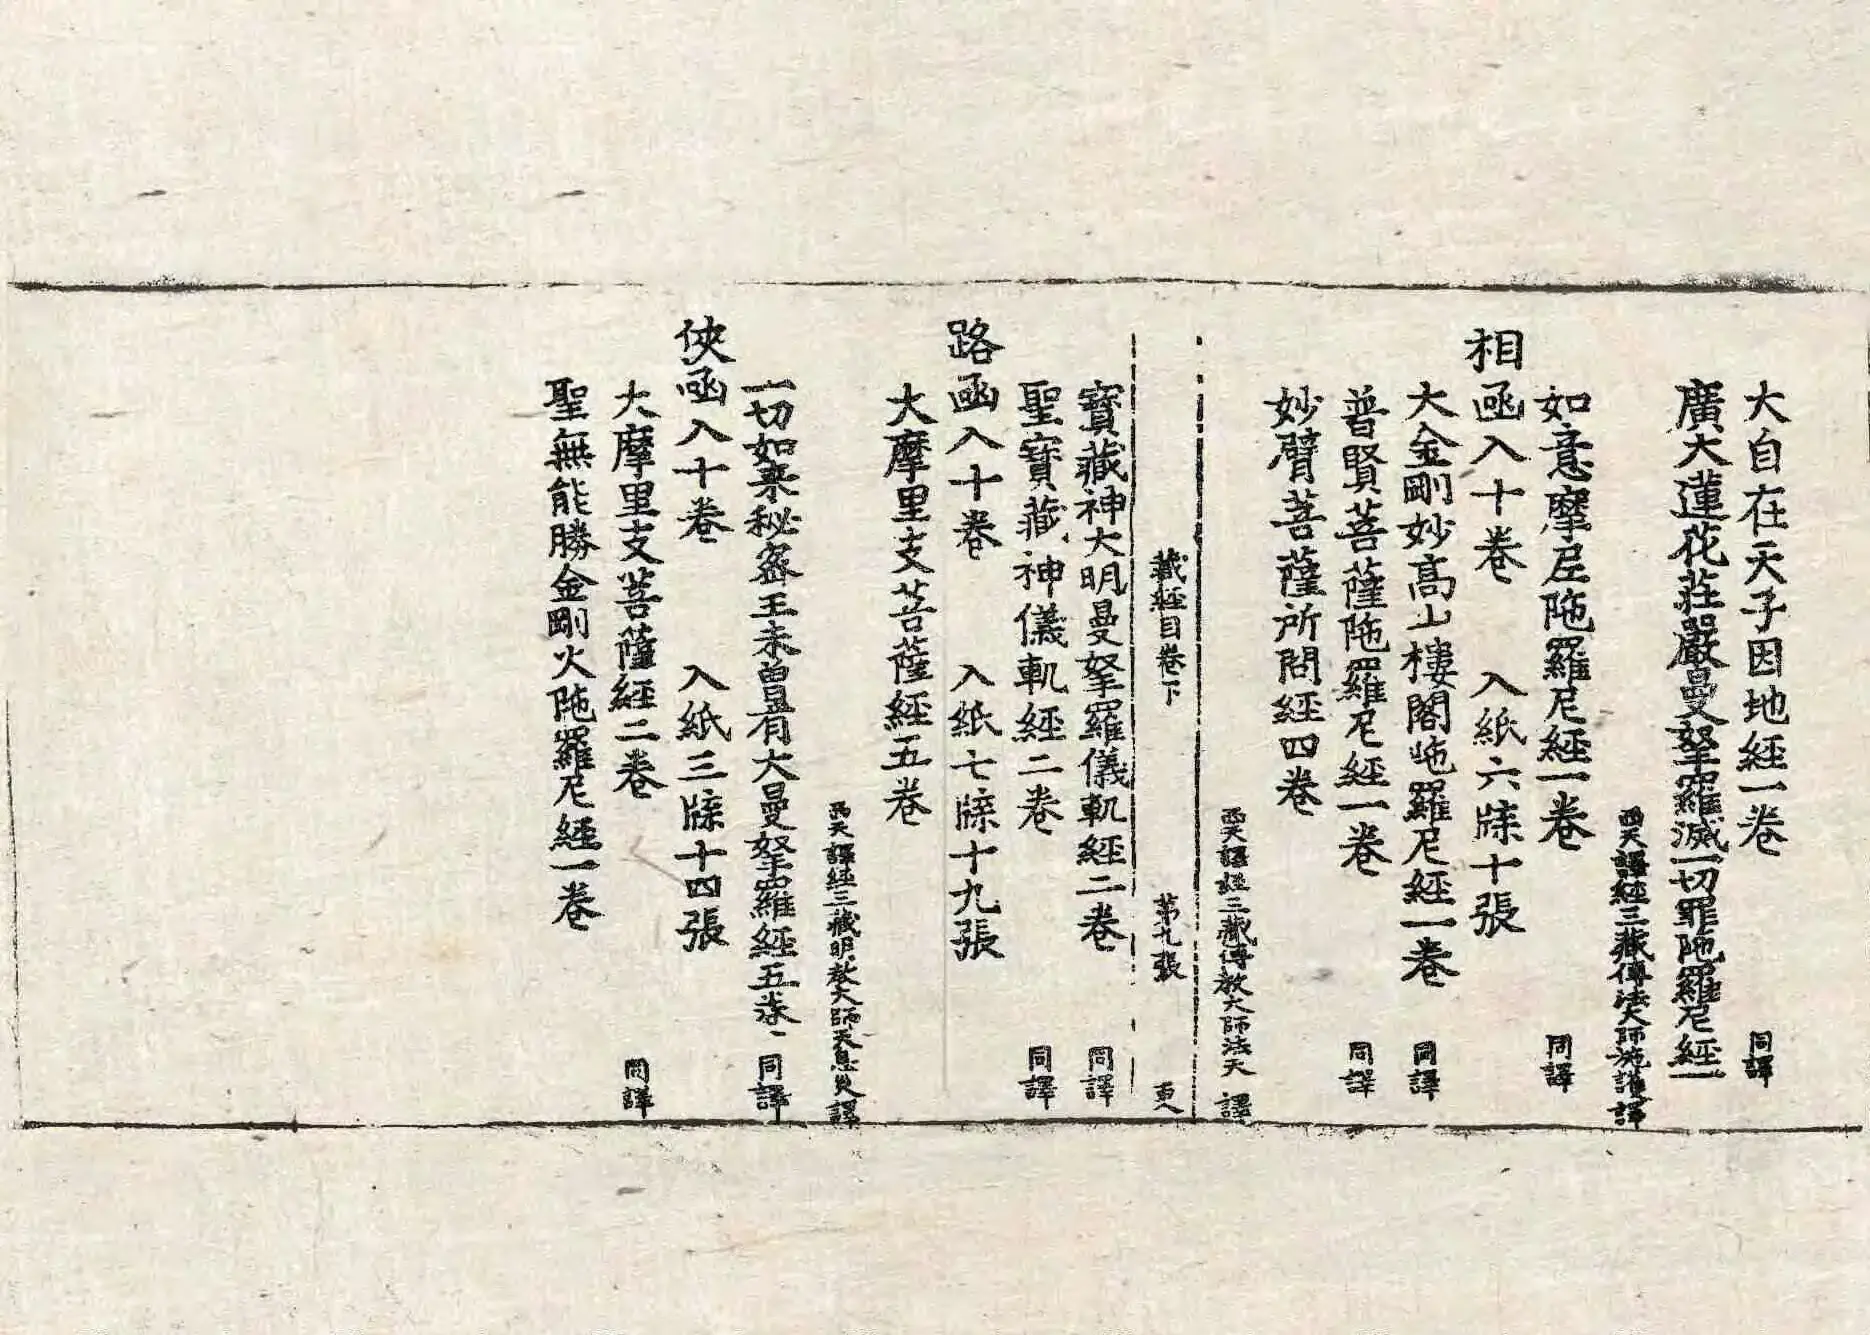 大自在天子因地經一卷 同譯
廣大蓮花莊嚴曼拏羅滅一切罪陁羅尼經一
西天譯經三藏傳法大師施護譯
如意摩尼陁羅尼經一卷 同譯
相函入十卷 入紙六牒十張
大金剛妙高山樓閣陁羅尼經一卷 同譯
普賢菩薩陁羅尼經一卷 同譯
妙臂菩薩所問經四卷
西天譯經三藏傳教大師法天 譯
藏經目卷下 第九張 更
寶藏神大明曼拏羅儀軌經二卷 同譯
聖寶藏神儀軌經二卷 同譯
路函入十卷 入紙七牒十九張
大摩里支菩薩經五卷
西天譯經三藏明教大師天息災譯
一切如来秘密王未曽有大曼拏羅經五卷 同譯
俠函入十卷 入紙三牒十四張
大摩里支菩薩經二卷 同譯
聖無能勝金剛火陁羅尼經一卷